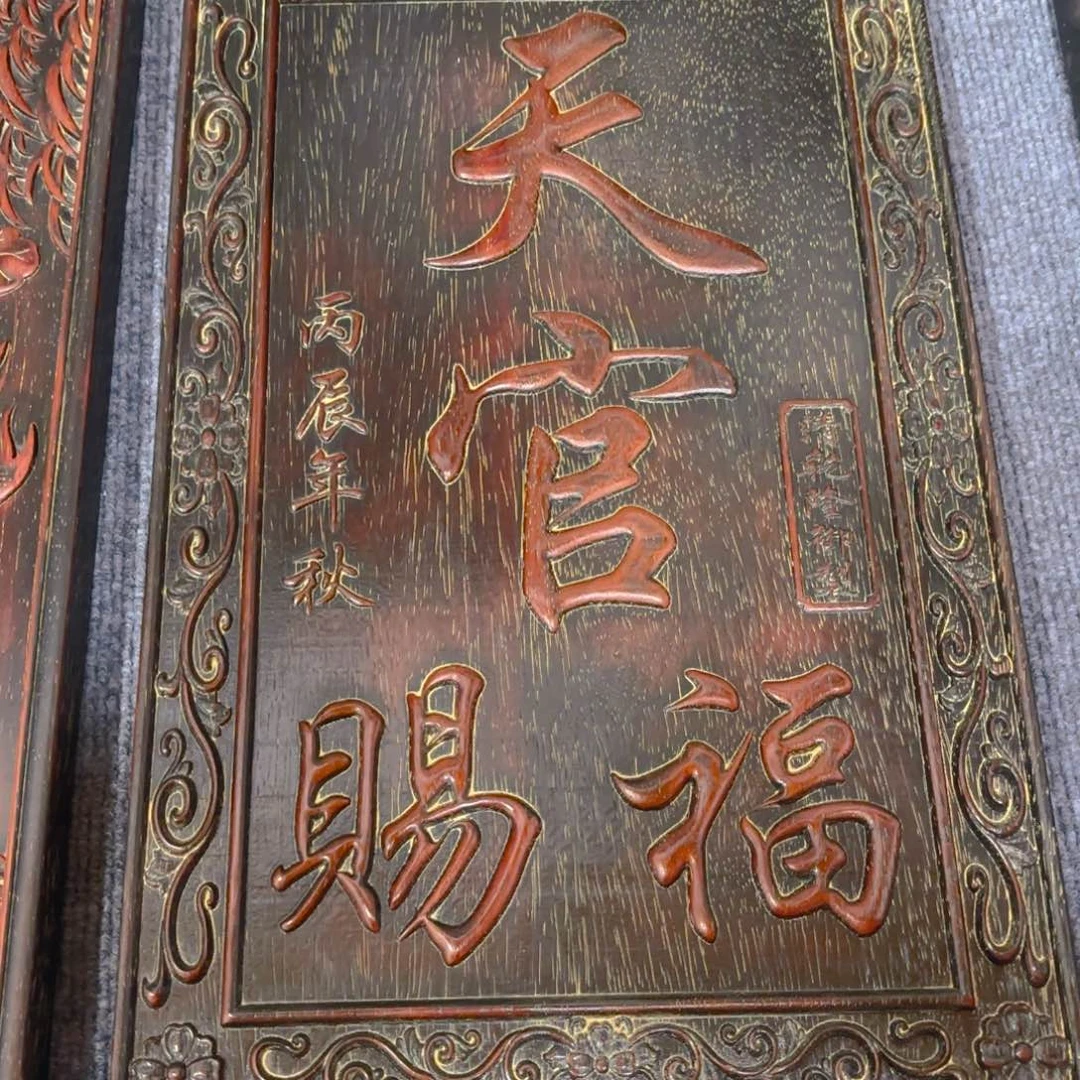 清乾隆御製
天
官
賜福
丙辰年秋